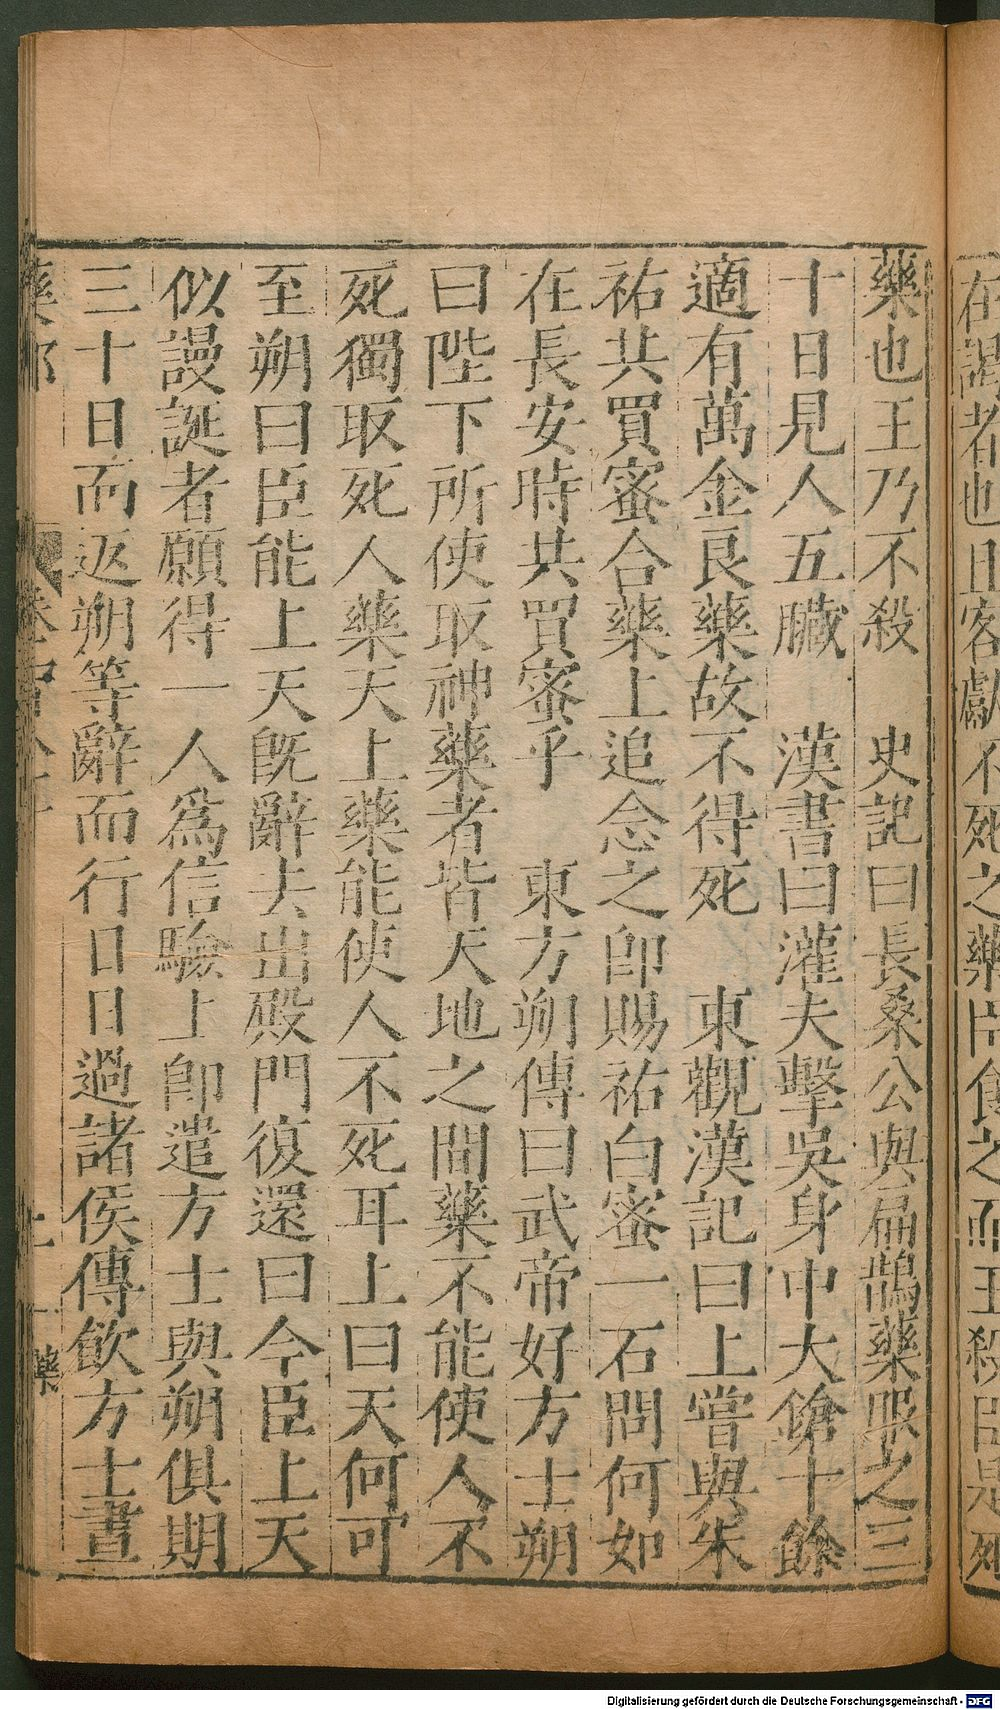 在謁者也且客獻不死之藥臣食之而王殺臣是死
藥也王乃不殺　史記曰長桑公與扁鵲藥服之三
十日見人五臟　漢書曰灌夫擊吳身中大鎗十餘
適有萬金良藥故不得死　東觀漢記曰上嘗與朱
祐共買蜜合藥上追念之即賜祐白蜜一石問何如
在長安時共買蜜乎　東方朔傳曰武帝好方士朔
曰陛下所使取神藥者皆天地之間藥不能使人不
死獨取死人藥天上藥能使人不死耳上曰天何可
至朔曰臣能上天既辭去出殿門復還曰今臣上天
似謾誕者願得一人為信驗上即遣方士與朔俱期
三十日而返朔等辭而行日日過諸侯傳飲方士晝
藥
Digitalisierung gefördert durch die Deutsche Forschungsgemeinschaft - DFG